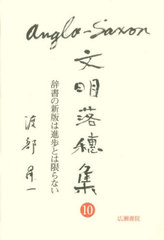 Anglo-Saxon
文明落穂集
辞書の新版は進歩とは限らない
渡部昇一
10
広瀬書院